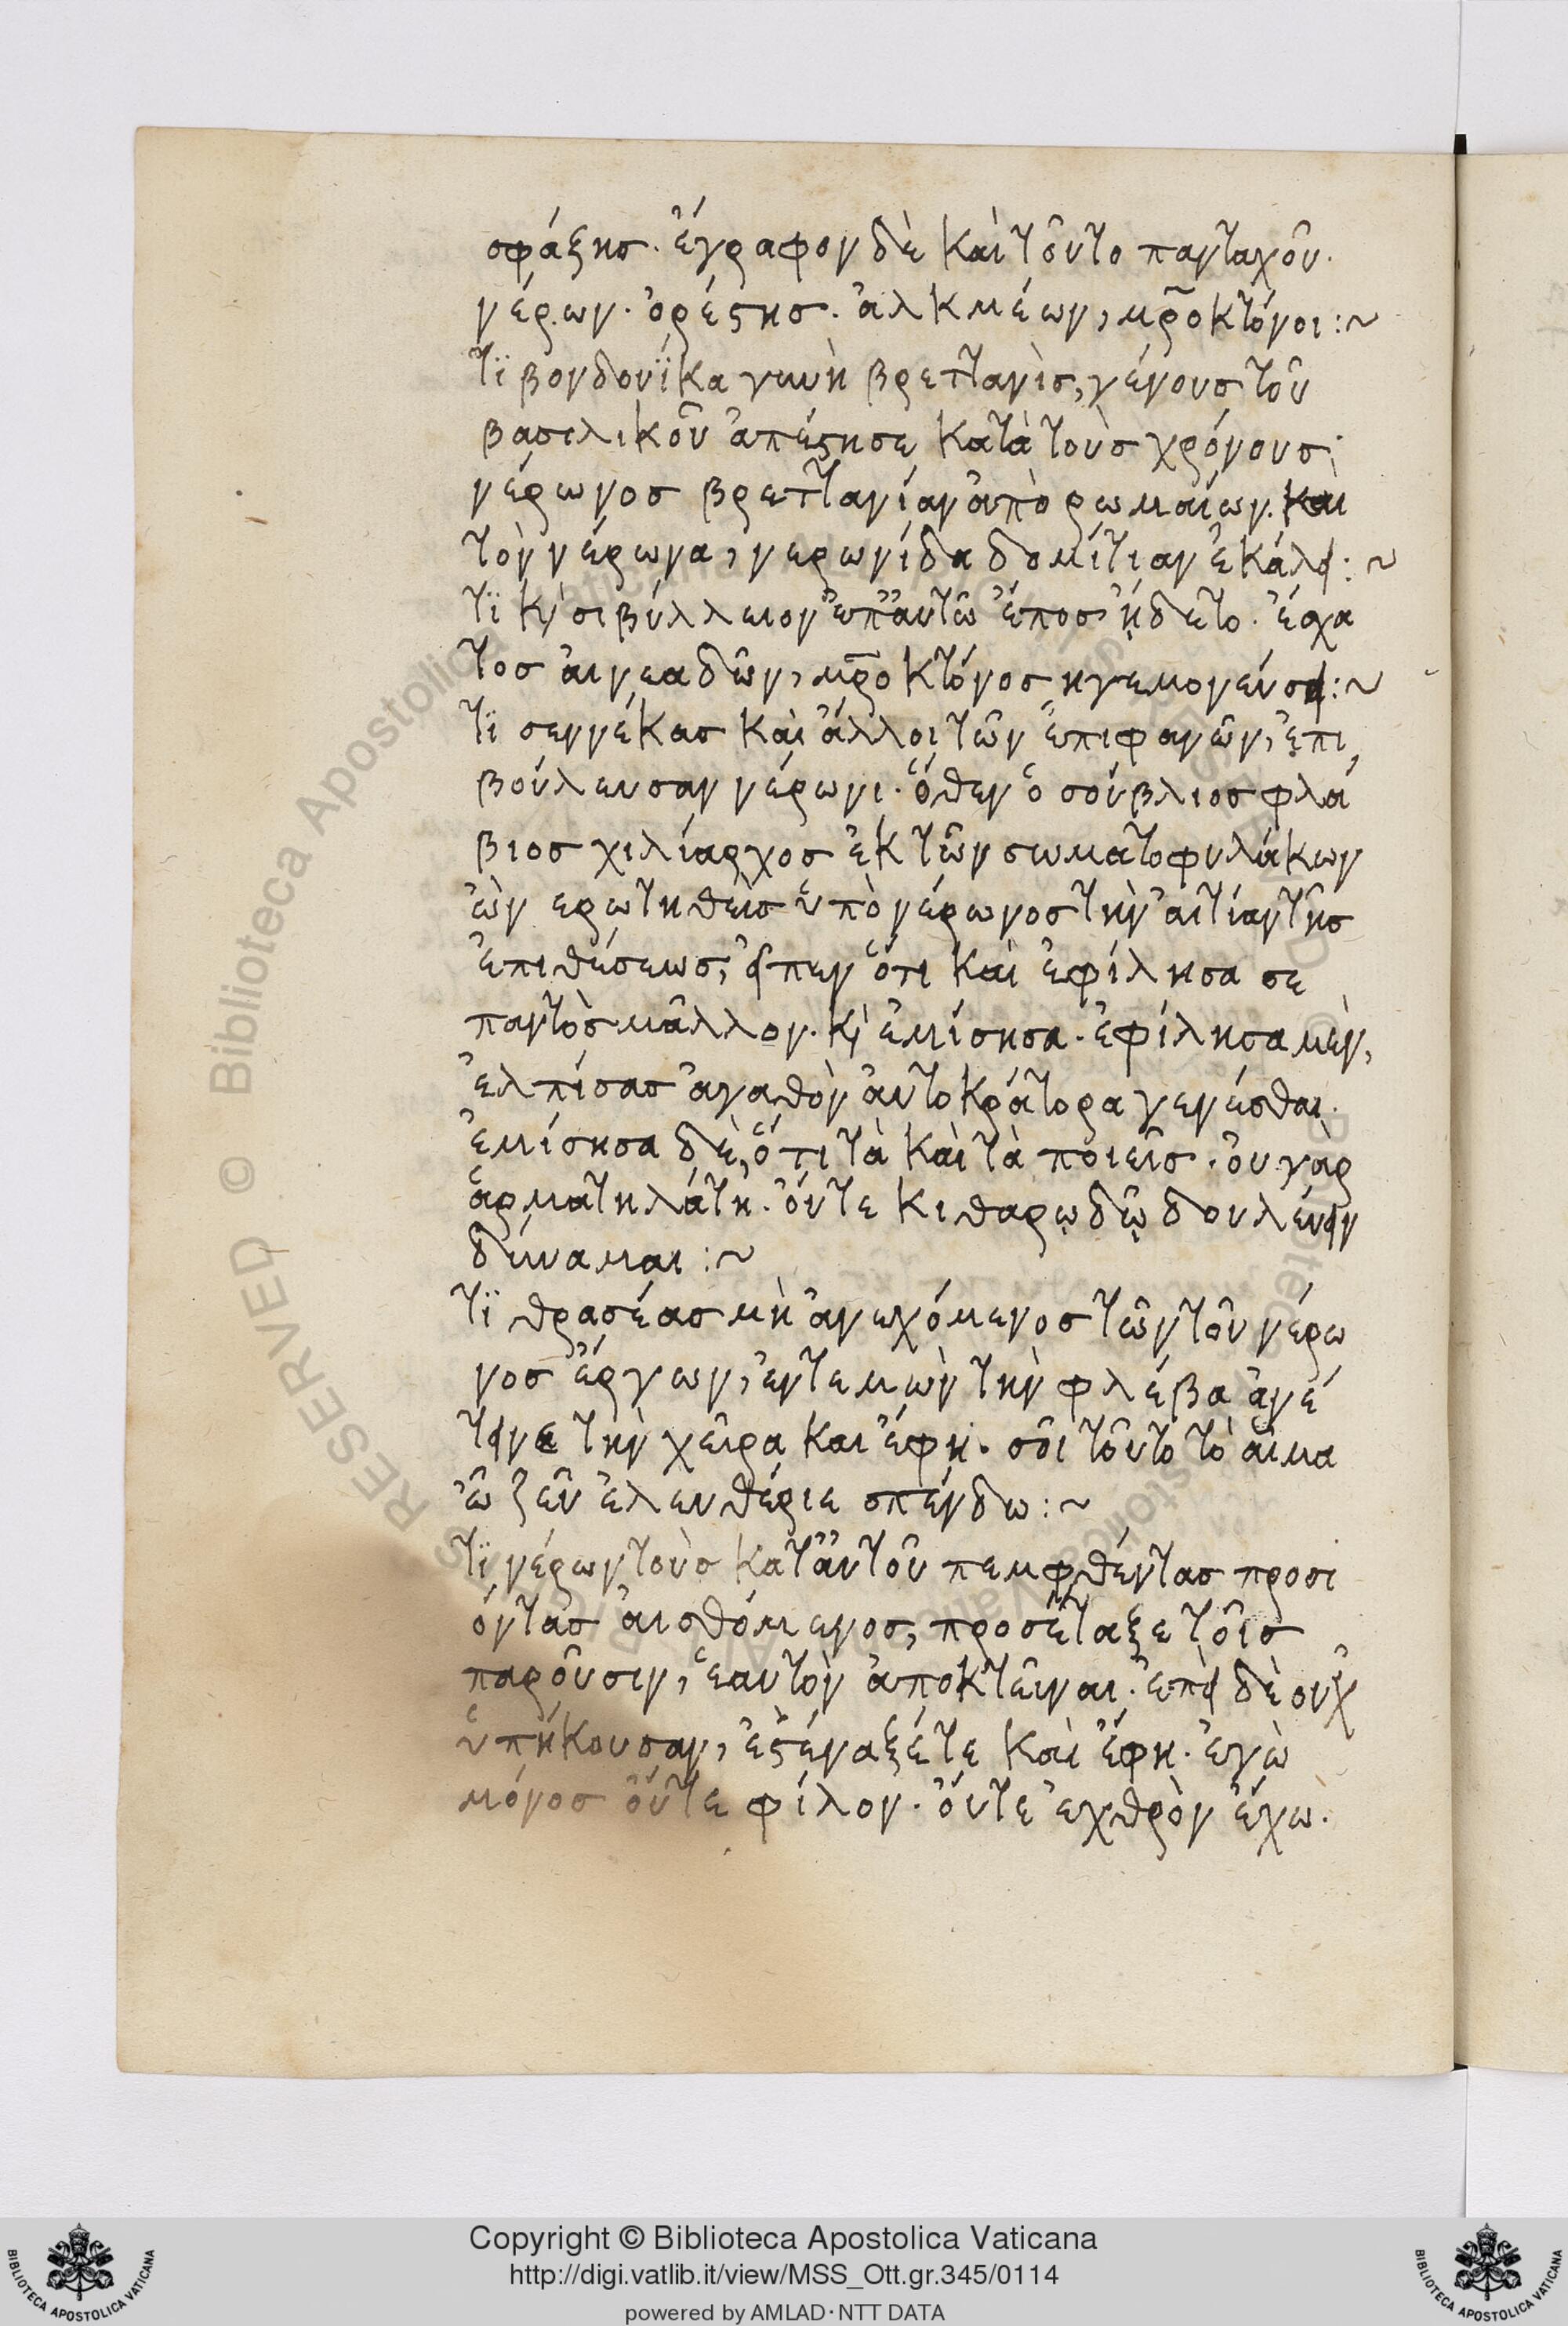 σφάξης. ἔγραφον δὲ καὶ τοῦτο πανταχοῦ.
νέρων. ὀρέστης. ἀλκμέων, μρ̅οκτόνοι:~
τϊ βονδουΐκα γυνὴ βρεττανὶς, γένους τοῦ
βασιλικοῦ ἀπέστησε κατὰ τοὺς χρόνους
νέρωνος βρεττανίαν ἀπὸ ρωμαίων. καὶ
τὸν νέρωνα, νερωνίδα δομίτιαν ἐκάλει:~
τϊ κ̀ σιβύλλειον ἐπ' αὐτῶ ἔπος ἤ̣δετο. ἔσχα
τος ἀινεαδῶν, μρ̅οκτόνος ηγεμονεύσει:~
τϊ σεννέκας καὶ ἄλλοι τῶν ἐπιφανῶν, ἐπι
βούλευσαν νέρωνι. ὅθεν ὁ σούβλιος φλά
βιος χιλίαρχος ἐκ τῶν σωματοφυλάκων
ὢν ερωτηθεὶς ὑπὸ νέρωνος τὴν ἀιτίαν τῆς
ἐπιθέσεως, εἶπεν ὅτι καὶ ἐφίλησα σε
παντὸς μᾶλλον. κ̀ ἐμίσησα. ἐφίλησα μὲν,
ἐλπίσας ἀγαθὸν ἀυτοκράτορα γενέσθαι.
ἐμίσησα δὲ, ὅτι τὰ καὶ τὰ ποιεῖς. ὀυ γὰρ
ἁρματηλάτη. ὄυτε κιθαρῳδῷ δουλέυειν
δύναμαι:~
τϊ θρασέας μὴ ἀνεχόμενος τῶν τοῦ νέρω
νος ἔργων, ἐντεμὼν τὴν φλέβα ἀνέ
τεινε τὴν χεῖρα και ἔφη. σὸι τοῦτο τὸ αἷμα
ὦ ζεῦ ἐλευθέριε σπένδω:~
τϊ νέρων τοὺς κατ' ἀυτοῦ πεμφθέντας προσι
όντας ἀισθόμενος, προσέταξε τοῖς
παροῦσιν, ἑαυτὸν ἀποκτεῖναι. ἐπεὶ δὲ οὐχ
ὑπήκουσαν, ἐστέναξέ τε καὶ ἔφη. ἐγὼ
μόνος ὄυτε φίλον. ὄυτε ἐχθρὸν ἔχω.
© Biblioteca Apostolica Vaticana
Copyright © Biblioteca Apostolica Vaticana
http://digi.vatlib.it/view/MSS_Ott.gr.345/0114
powered by AMLAD·NTT DATA
BIBLIOTECA APOSTOLICA VATICANA
BIBLIOTECA APOSTOLICA VATICANA